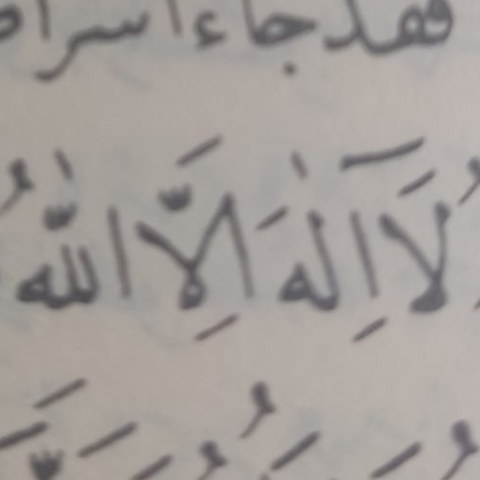 فقد جاء اشراط
لَآ اِلٰهَ اِلَّا اللّٰهُ